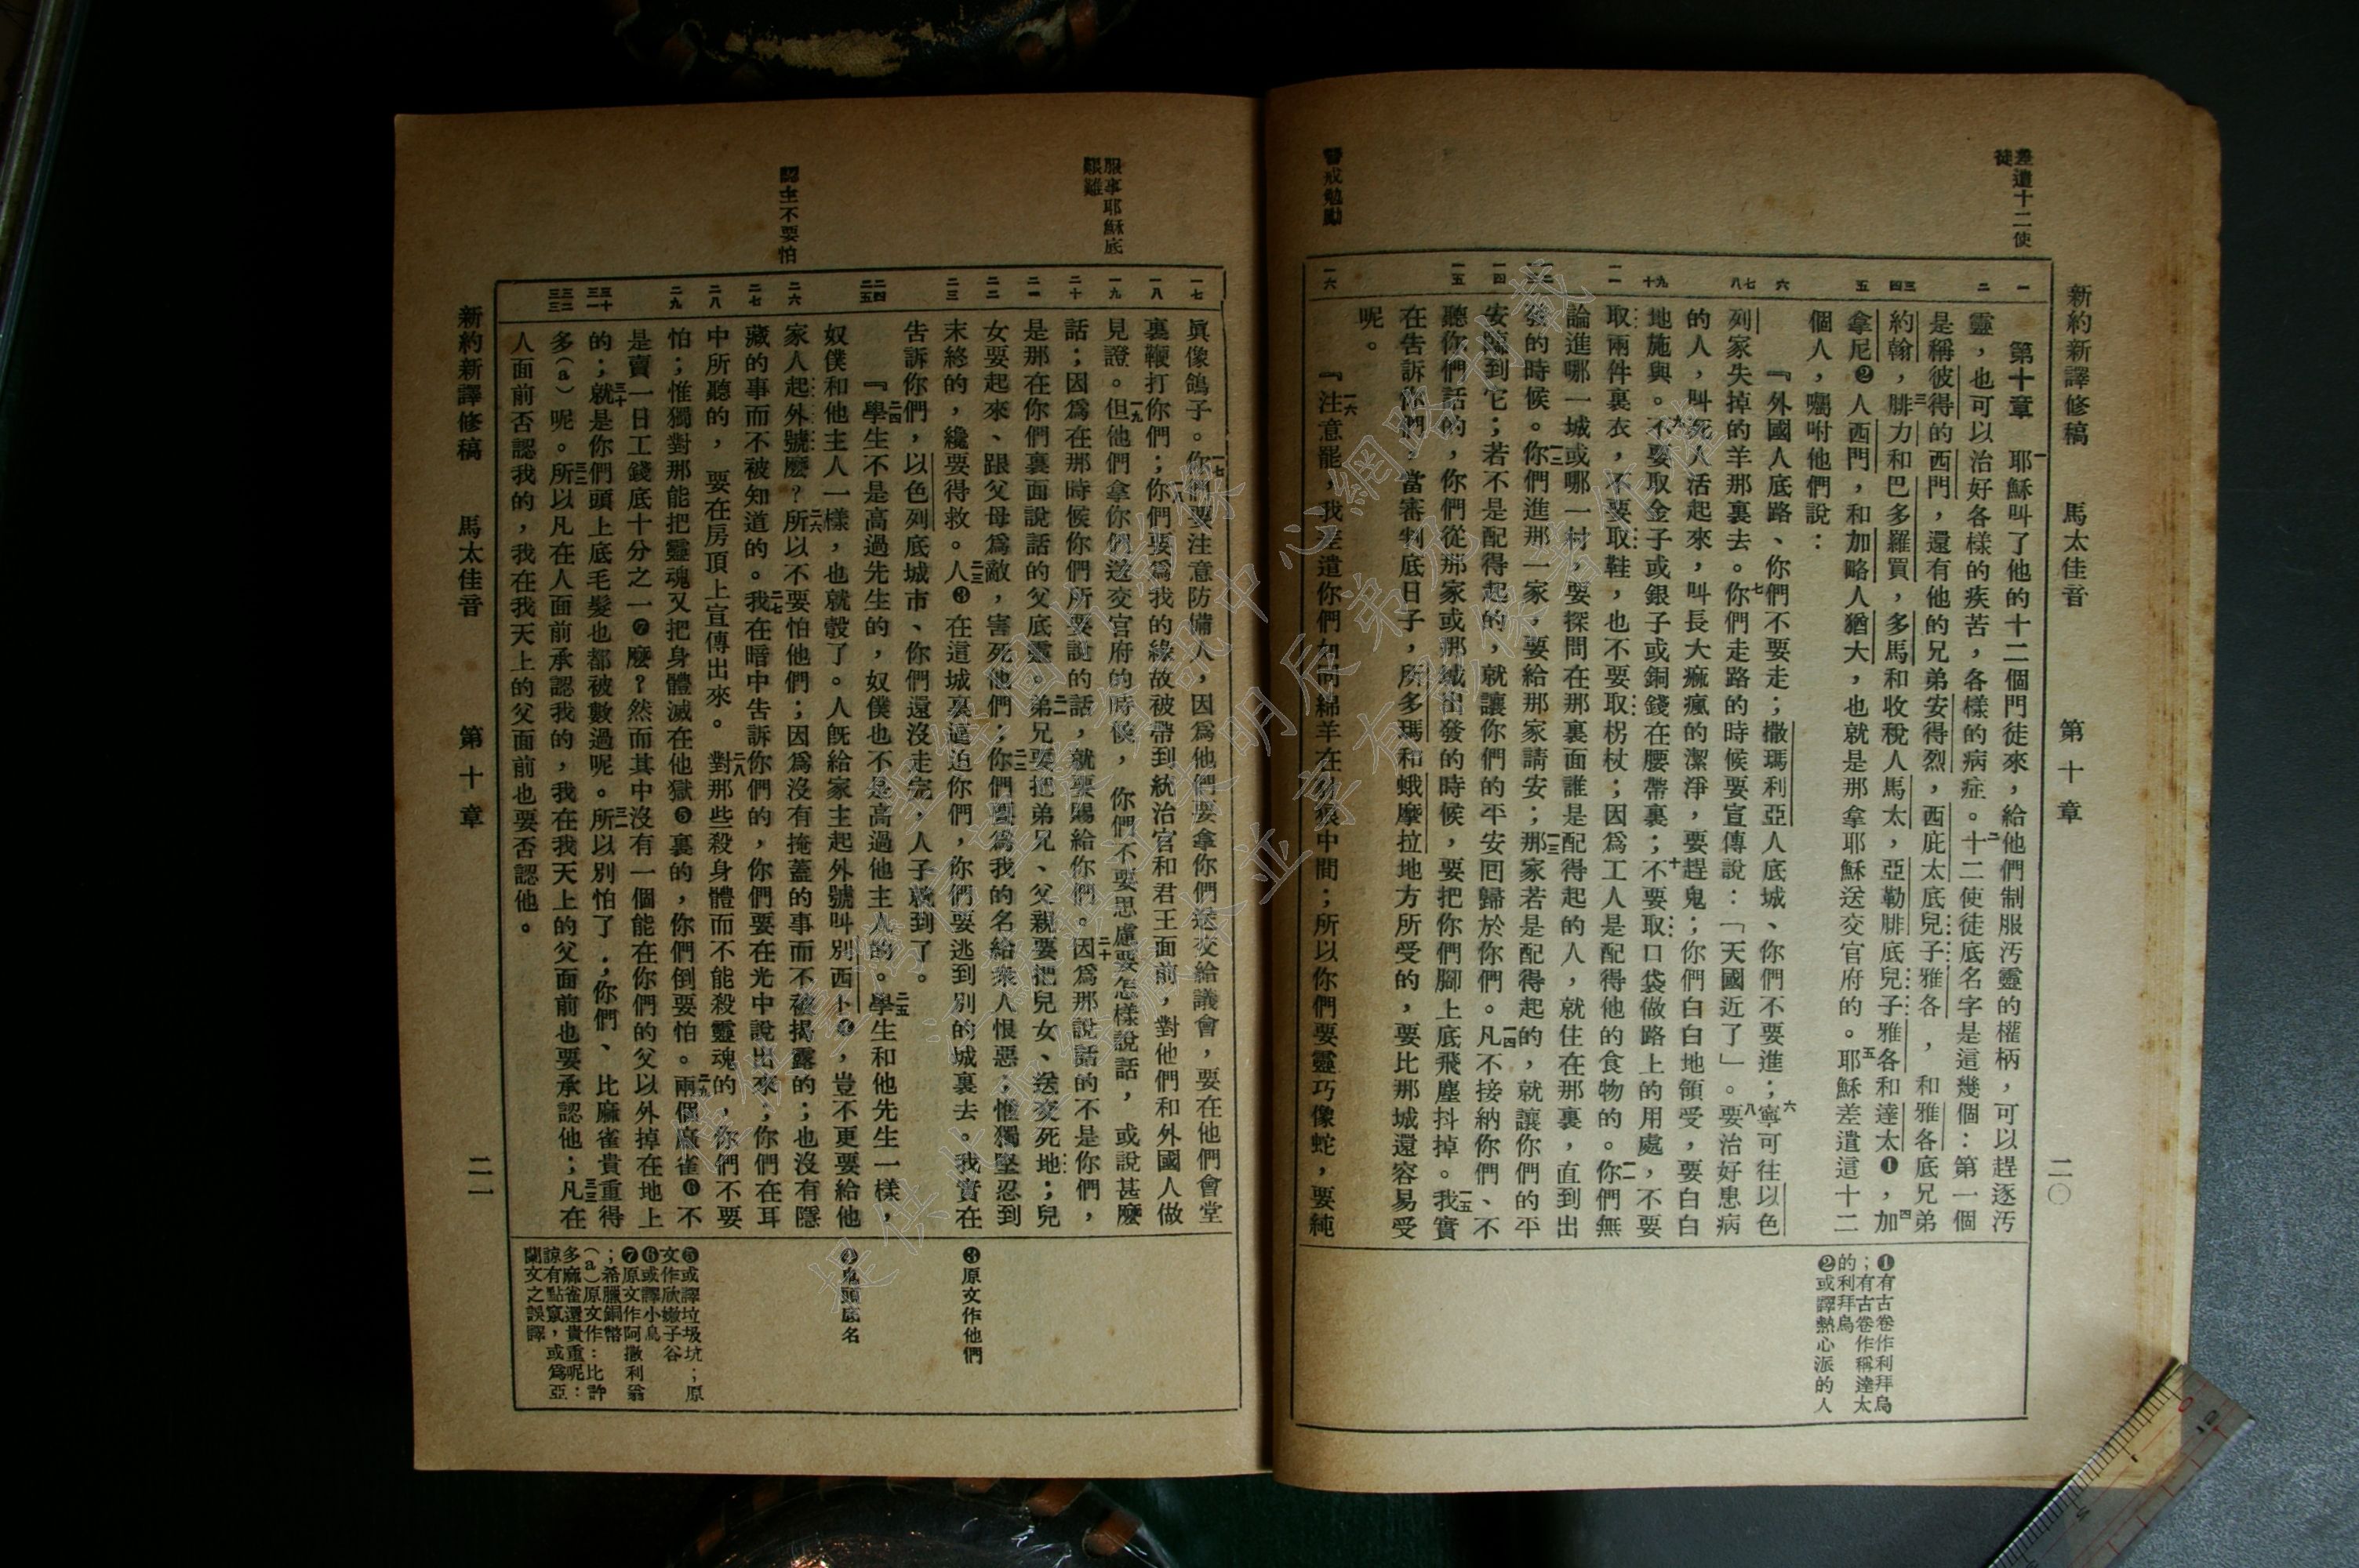 新約新譯修稿　馬太佳音　第十章　二〇
差遣十二使
徒
警戒勉勵
一
二
三
四
五
六
七
八
九
十
一一
一二
一三
一四
一五
一六
第十章　一耶穌叫了他的十二個門徒來，給他們制服汚靈的權柄，可以趕逐汚
靈，也可以治好各樣的疾苦，各樣的病症。二十二使徒底名字是這幾個：第一個
是稱彼得的西門，還有他的兄弟安得烈，西庇太底兒子雅各，和雅各底兄弟
約翰，三腓力和巴多羅買，多馬和收稅人馬太，亞勒腓底兒子雅各和達太❶，四加
拿尼❷人西門，和加略人猶大，也就是那拿耶穌送交官府的。五耶穌差遣這十二
個人，囑咐他們說：
『外國人底路、你們不要走；撒瑪利亞人底城、你們不要進；六寧可往以色
列家失掉的羊那裏去。七你們走路的時候要宣傳說：「天國近了」。八要治好患病
的人，叫死人活起來，叫長大痲瘋的潔淨，要趕鬼；你們白白地領受，要白白
地施與。九不要取金子或銀子或銅錢在腰帶裏；十不要取口袋做路上的用處，不要
取兩件裏衣，不要取鞋，也不要取枴杖；因爲工人是配得他的食物的。一一你們無
論進哪一城或哪一村，要探問在那裏面誰是配得起的人，就住在那裏，直到出
發的時候。一二你們進那一家，要給那家請安；一三那家若是配得起的，就讓你們的平
安臨到它；若不是配得起的，就讓你們的平安囘歸於你們。一四凡不接納你們、不
聽你們話的，你們從那家或那城出發的時候，要把你們腳上底飛塵抖掉。一五我實
在告訴你們，當審判底日子，所多瑪和蛾摩拉地方所受的，要比那城還容易受
呢。
『一六注意罷，我差遣你們如同綿羊在豺狼中間；所以你們要靈巧像蛇，要純
❶有古卷作利拜烏
；有古卷作稱達太
的利拜烏
❷或譯熱心派的人
服事耶穌底
艱難
認主不要怕
一七
一八
一九
二十
二一
二二
二三
二四
二五
二六
二七
二八
二九
三十
三一
三二
三三
眞像鴿子。一七你們要注意防備人，因爲他們要拿你們送交給議會，要在他們會堂
裏鞭打你們；一八你們要爲我的緣故被帶到統治官和君王面前，對他們和外國人做
見證。一九但他們拿你們送交官府的時候，你們不要思慮要怎樣說話，或說甚麼
話；因爲在那時候你們所要說的話，就要賜給你們。二十因爲那說話的不是你們，
是那在你們裏面說話的父底靈。二一弟兄要把弟兄、父親要把兒女、送交死地；兒
女要起來、跟父母爲敵，害死他們；二二你們要爲我的名給衆人恨惡；惟獨堅忍到
末終的，纔要得救。二三人❸在這城裏逼迫你們，你們要逃到別的城裏去。我實在
告訴你們，以色列底城市、你們還沒走完，人子就到了。
『二四學生不是高過先生的，奴僕也不是高過他主人的。二五學生和他先生一樣，
奴僕和他主人一樣，也就彀了。人旣給家主起外號叫別西卜❹，豈不更要給他
家人起外號麼？二六所以不要怕他們；因爲沒有掩蓋的事而不被揭露的；也沒有隱
藏的事而不被知道的。二七我在暗中告訴你們的，你們要在光中說出來；你們在耳
中所聽的，要在房頂上宣傳出來。二八對那些殺身體而不能殺靈魂的，你們不要
怕；惟獨對那能把靈魂又把身體滅在他獄❺裏的，你們倒要怕。二九兩個麻雀❻不
是賣一日工錢底十分之一❼麼？然而其中沒有一個能在你們的父以外掉在地上
的；三十就是你們頭上底毛髮也都被數過呢。三一所以別怕了；你們、比麻雀貴重得
多(a)呢。三二所以凡在人面前承認我的，我在我天上的父面前也要承認他；三三凡在
人面前否認我的，我在我天上的父面前也要否認他。
❸原文作他們
❹鬼頭底名
❺或譯垃圾坑；原
文作欣嫩子谷
❻或譯小鳥
❼原文作阿撒利翁
；希臘銅幣
(a)原文作：比許
多麻雀還貴重呢：
諒有點竄，或爲亞
蘭文之誤譯
新約新譯修稿　馬太佳音　第十章　二一